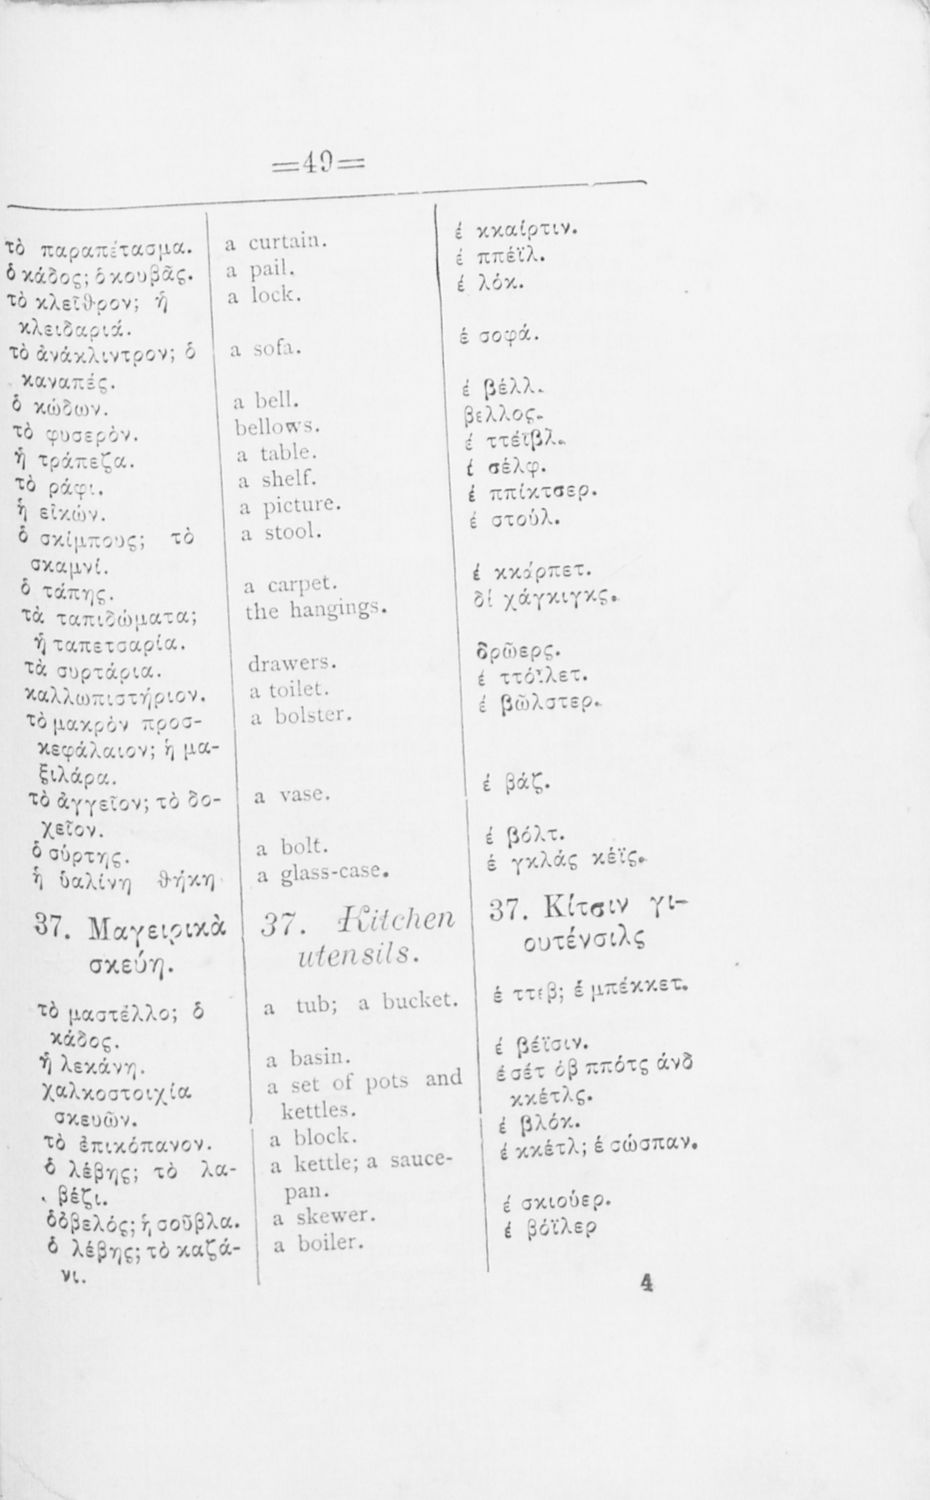 =49=
τὸ παραπέτασμα. a curtain. ἐ κκαίρτιν.
ὁ κάδος; ὁ κουβᾶς. a pail. ἐ ππέϊλ.
τὸ κλεῖθρον; ἡ a lock. ἐ λόκ.
κλειδαριά.
τὸ ἀνάκλιντρον; ὁ a sofa. ἐ σοφά.
καναπές.
ὁ κώδων. a bell. ἐ βέλλ.
τὸ φυσερὸν. bellows. βελλος.
ἡ τράπεζα. a table. ἐ ττέϊβλ.
τὸ ράφι. a shelf. ἐ σέλφ.
ἡ εἰκών. a picture. ἐ ππίκτσερ.
ὁ σκίμπους; τὸ a stool. ἐ στούλ.
σκαμνί.
ὁ τάπης. a carpet. ἐ κκάρπετ.
τὰ ταπιδώματα; the hangings. δί χάγκιγκς.
ἡ ταπετσαρία.
τὰ συρτάρια. drawers. δρῶερς.
καλλωπιστήριον. a toilet. ἐ ττόϊλετ.
τὸ μακρὸν προσ- a bolster. ἐ βῶλστερ.
κεφάλαιον; ἡ μα-
ξιλάρα.
τὸ ἀγγεῖον; τὸ δο- a vase. ἐ βάζ.
χεῖον.
ὁ σύρτης. a bolt. ἐ βόλτ.
ἡ ὑαλίνη θήκη a glass-case. ἐ γκλάς κέϊς.
37. Μαγειρικὰ 37. Kitchen 37. Κίτσιν γι-
σκεύη. utensils. ουτένσιλς
τὸ μαστέλλο; ὁ a tub; a bucket. ἐ ττεβ; ἐ μπέκκετ.
κάδος.
ἡ λεκάνη. a basin. ἐ βέϊσιν.
χαλκοστοιχία a set of pots and ἐ σέτ ὀβ ππότς ἀνδ
σκευῶν. kettles. κκέτλς.
τὸ ἐπικόπανον. a block. ἐ βλόκ.
ὁ λέβης; τὸ λα- a kettle; a sauce- ἐ κκέτλ; ἐ σώσπαν.
βέζι. pan.
ὁ ὀβελός; ἡ σοῦβλα. a skewer. ἐ σκιούερ.
ὁ λέβης; τὸ καζά- a boiler. ἐ βόϊλερ
νι.
4